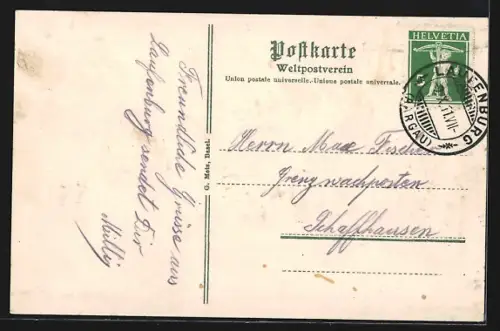 Postkarte
Weltpostverein
Union postale universelle.-Unione postale universale.
HELVETIA
LAUFENBURG
(AARGAU)
Freundliche Grüsse aus
Laufenburg sendet Dir
Milly
G. Metz, Basel.
Herrn Max Fischer
Grenzwachposten
Schaffhausen